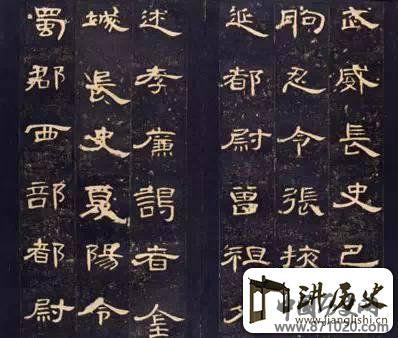 武威長史巴
朐忍令張掖
延都尉曾祖父
述孝廉謁者金
城長史夏陽令
蜀郡西部都尉
讲历史
www.jianglishi.cn
www.871020.com